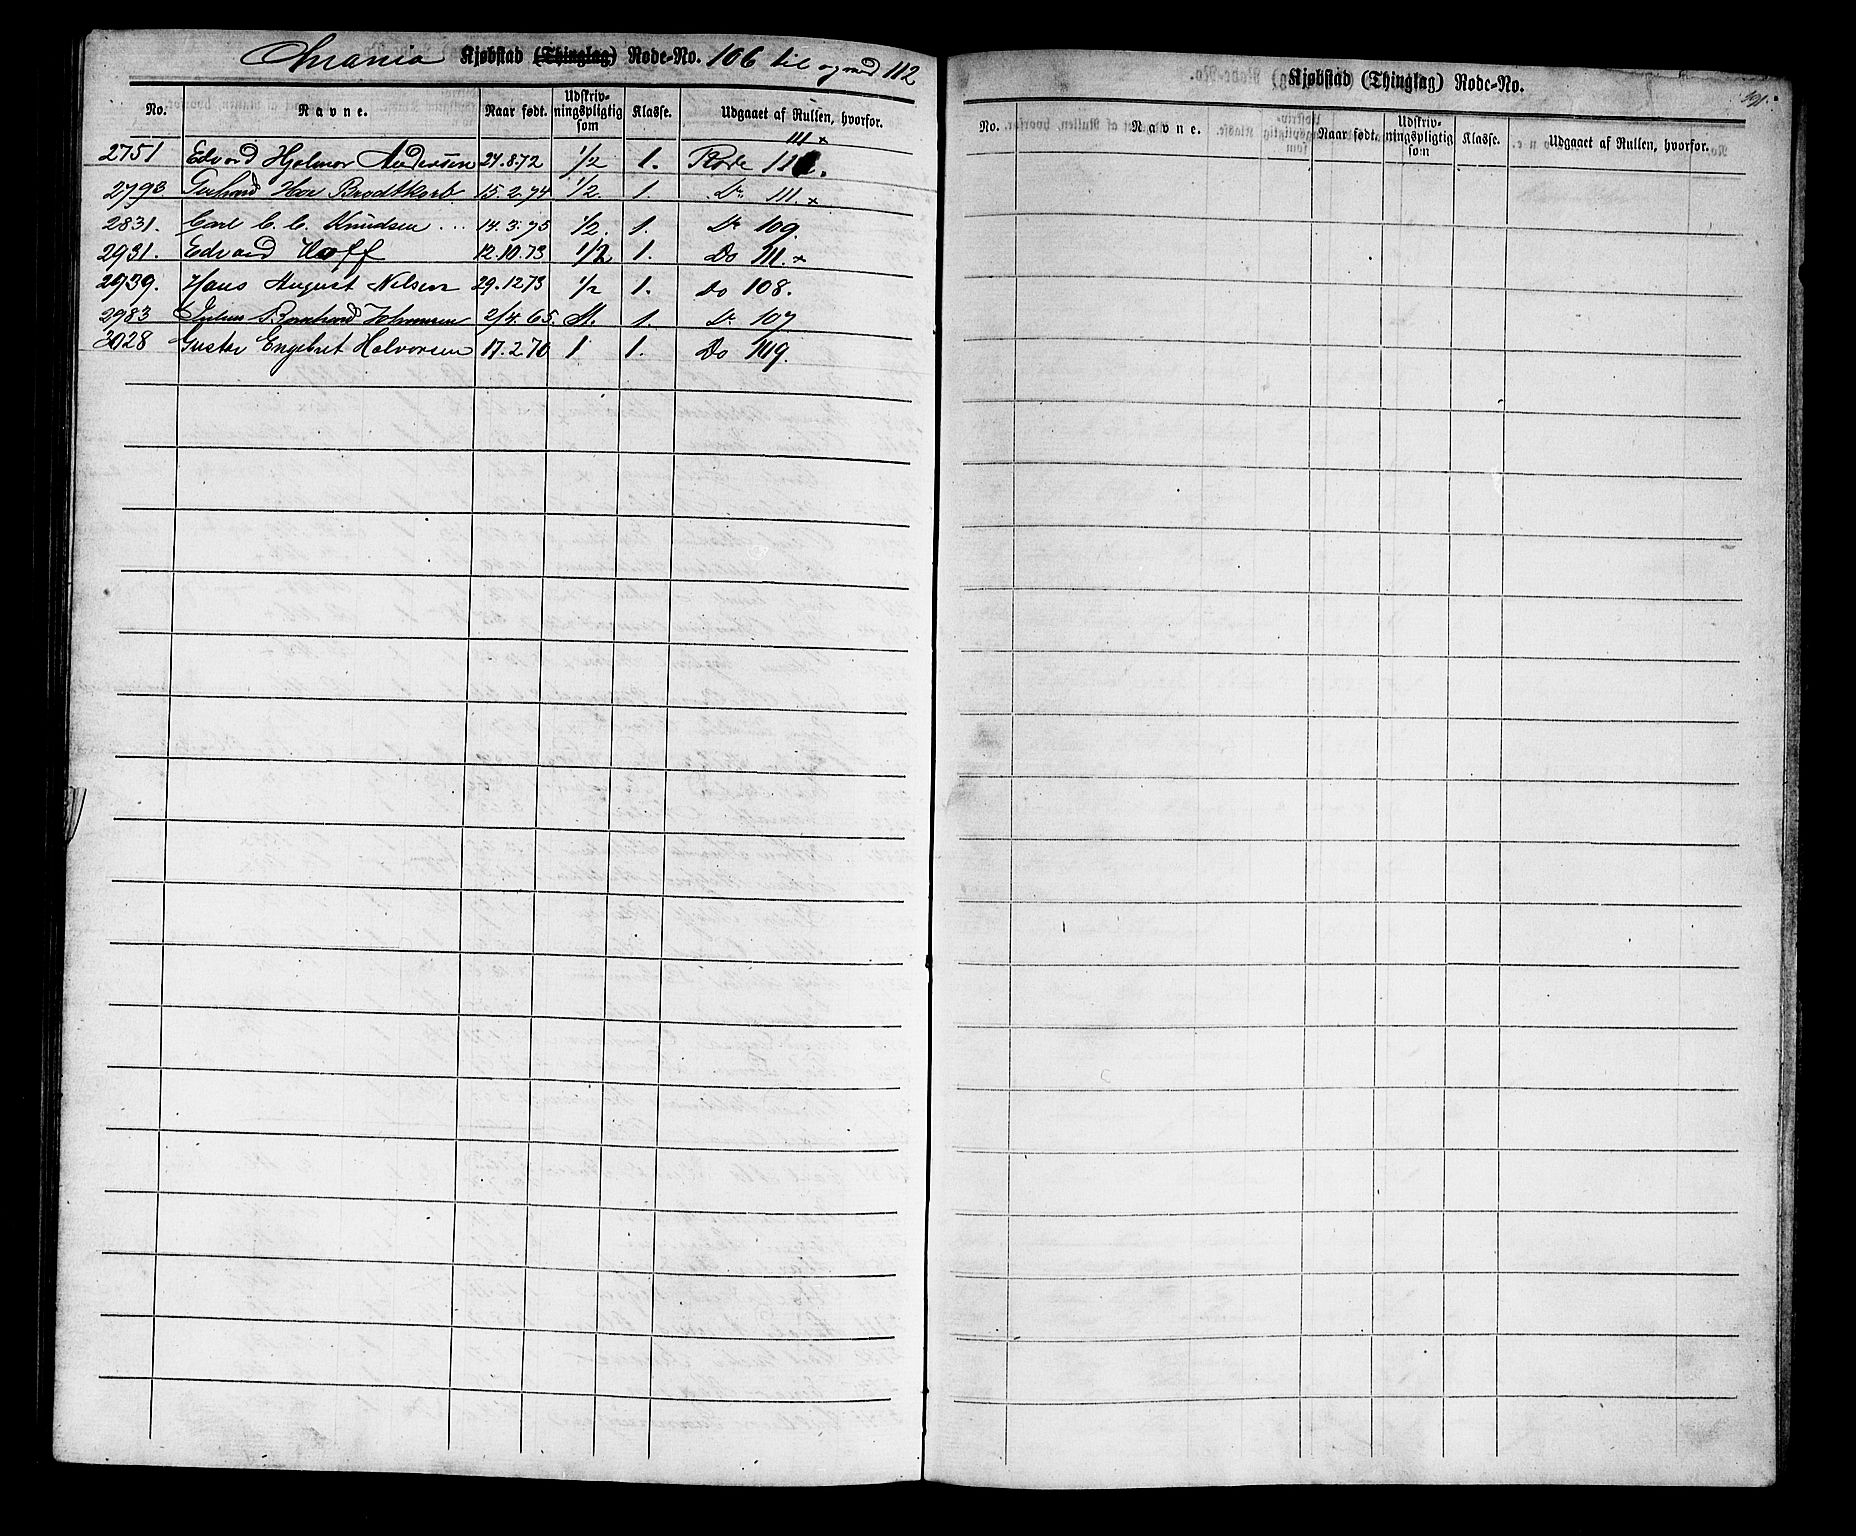 Xnania Kjøbstad (Thinglag) Rode-No. 106 til og med 112
No. Navne. Naar født. Udskrivningspligtig som Klasse. Udgaaet af Rullen, hvorfor.
111 x
2751 Edvard Hjalmar Andersen 27.8.72 1/2 1. Rode 111.
2793 Gerhard Hoe Brodtkorb. 15.2.74 1/2. 1. Do 111. x
2831. Carl C. C. Knudsen 14.3.75 1/2. 1. Do 109.
2931. Edvard Hoff 12.10.73 1/2 1. Do 111. x
2939. Hans August Nilsen 29.12.73 1/2 1. Do 108.
2983 Julius Bernhard Johansen 2/4.65. St. 1. Do 107
3028 Gustav Engebret Halvorsen 17.2.70 1 1. Do 109.
Kjøbstad (Thinglag) Rode-No.
No. Navne. Naar født. Udskrivningspligtig som Klasse. Udgaaet af Rullen, hvorfor.